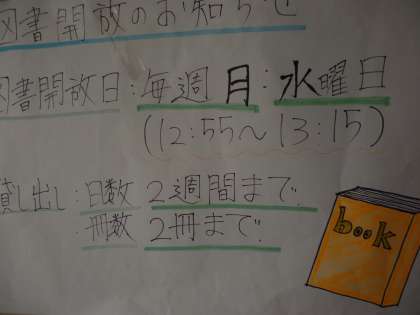 図書開放のお知らせ
図書開放日:毎週月:水曜日
(12:55〜13:15)
貸し出し:日数 2週間まで.
冊数 2冊まで.
book